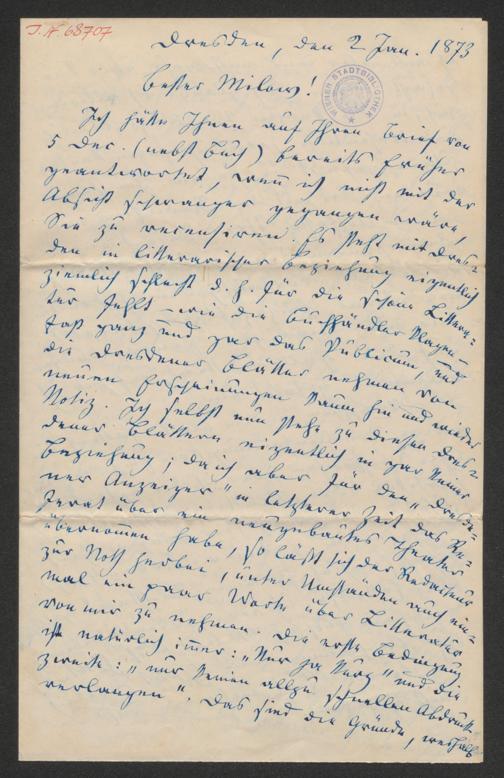 J.N. 68707
Dresden, den 2 Jan. 1873
WIENER STADTBIBLIOTHEK
Bester Milow!
Ich hätte Ihnen auf Ihren Brief von
5 Dec. (nebst Buch) bereits früher
geantwortet, wenn ich nicht mit der
Absicht schwanger gegangen wäre,
Sie zu recensiren. Es steht mit Dres-
den in litterarischer Beziehung eigentlich
ziemlich schlecht d. h. für die schöne Littera-
tur fehlt – wie die Buchhändler klagen –
fast ganz und gar das Publicum, und
die Dresdener Blätter nehmen von
neuen Erscheinungen kaum hin und wieder
Notiz. Ich selbst nun stehe zu diesen Dres-
dener Blättern eigentlich in gar keiner
Beziehung; da ich aber für den „Dresde-
ner Anzeiger“ in letzterer Zeit das Re-
ferat über ein neugebautes Theater
übernommen habe, so läßt sich der Redacteur
zur Noth herbei, unter Umständen auch ein-
mal ein paar Worte über Litteratur
von mir zu nehmen. Die erste Bedingung
ist natürlich immer: „Nur ja kurz“ und die
zweite: „nur keinen allzu schnellen Abdruck
verlangen“. Das sind die Gründe, weshalb